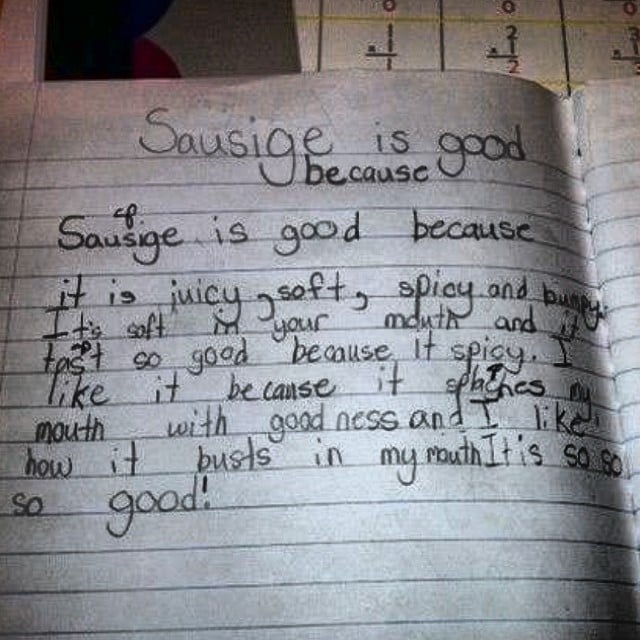 0 0 0
x 1 x 2 x 3
1 2
Sausige is good
because
sp
Sausige is good because
it is juicy, soft, spicy and
It's soft in your mouth and it
sp
tast so good because it spicy. I
like it because it my
mouth with good ness and I like
how it busts in my mouth It is so so
so good!